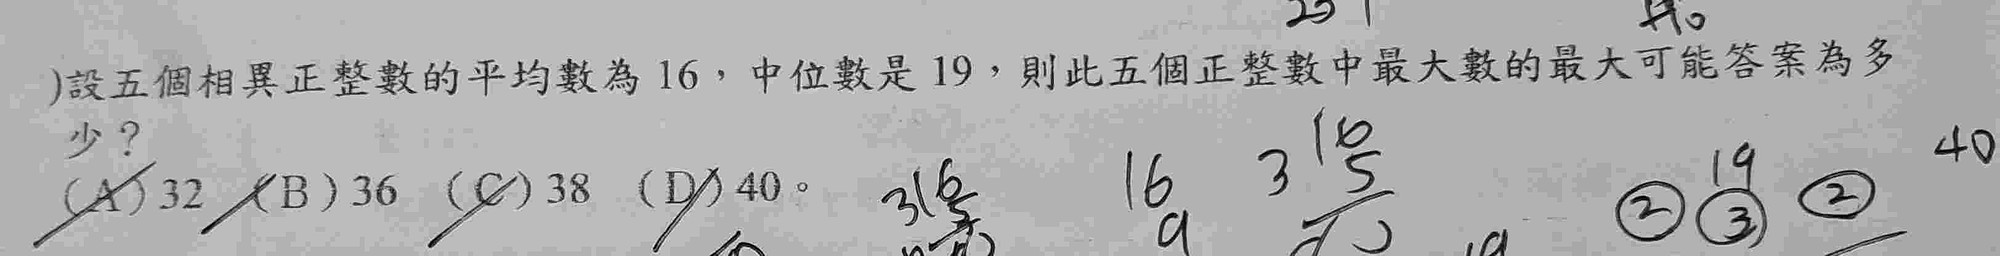 )設五個相異正整數的平均數為 16，中位數是 19，則此五個正整數中最大數的最大可能答案為多
少？
(A) 32 (B) 36 (C) 38 (D) 40。
16
9
3 16
5
19
② ③ ②
40
19